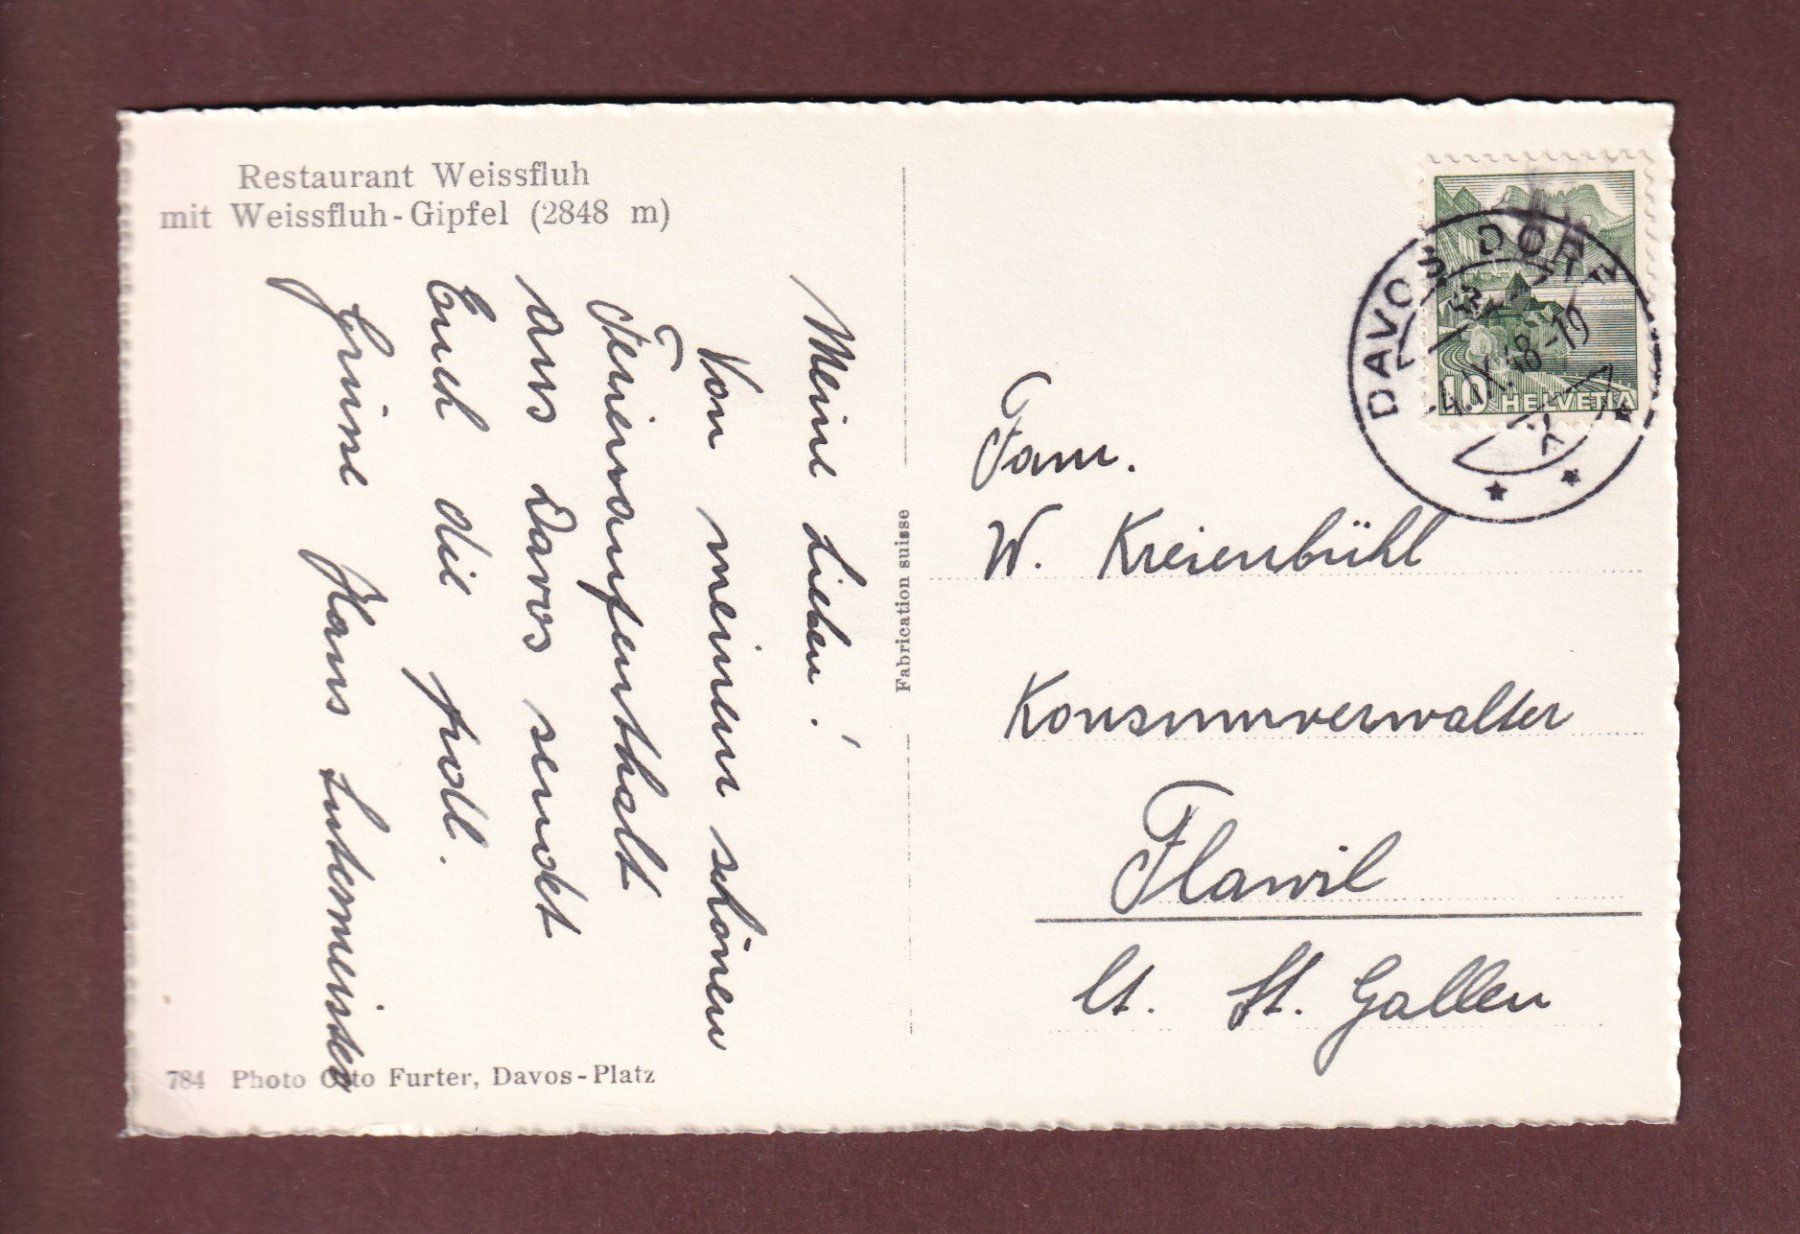 Restaurant Weissfluh
mit Weissfluh-Gipfel (2848 m)
Meine Lieben!
Von meinem schönen
Ferienaufenthalt
aus Davos sendet
Euch die frdl.
Grüsse Hans Lutermeister
784 Photo Otto Furter, Davos-Platz
Fabrication suisse
DAVOS DORF
48-19
10 HELVETIA
Fam.
W. Kreienbühl
Konsumverwalter
Flawil
Ct. St. Gallen